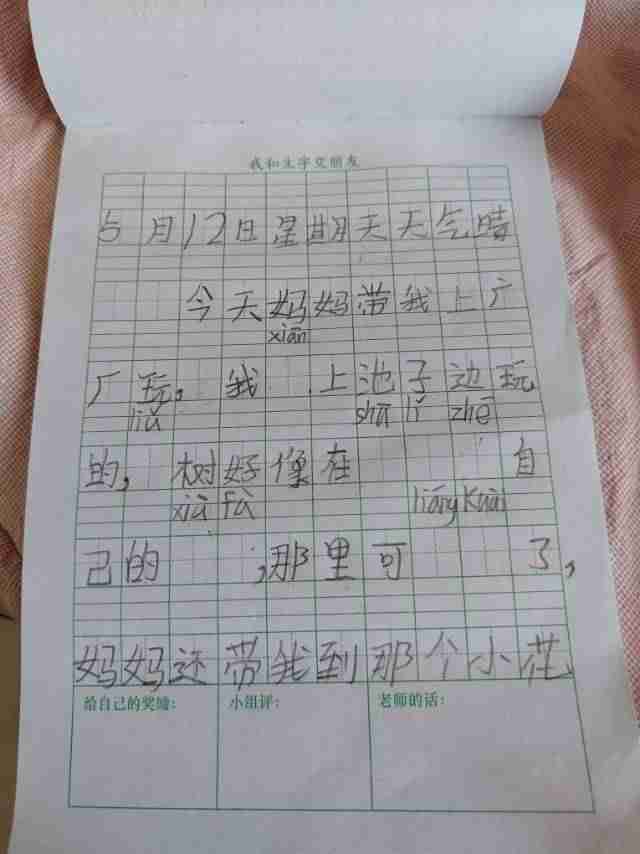 我和生字交朋友
5月12日星期天天气晴
今天妈妈带我上广
xiān
厂玩,我 上池子边玩
liǔ shū lǐ zhē
的,树好像在 自
xiū fà liáng Kuài
己的 ,那里可 了,
妈妈还带我到那个小花
给自己的奖励: 小组评: 老师的话: